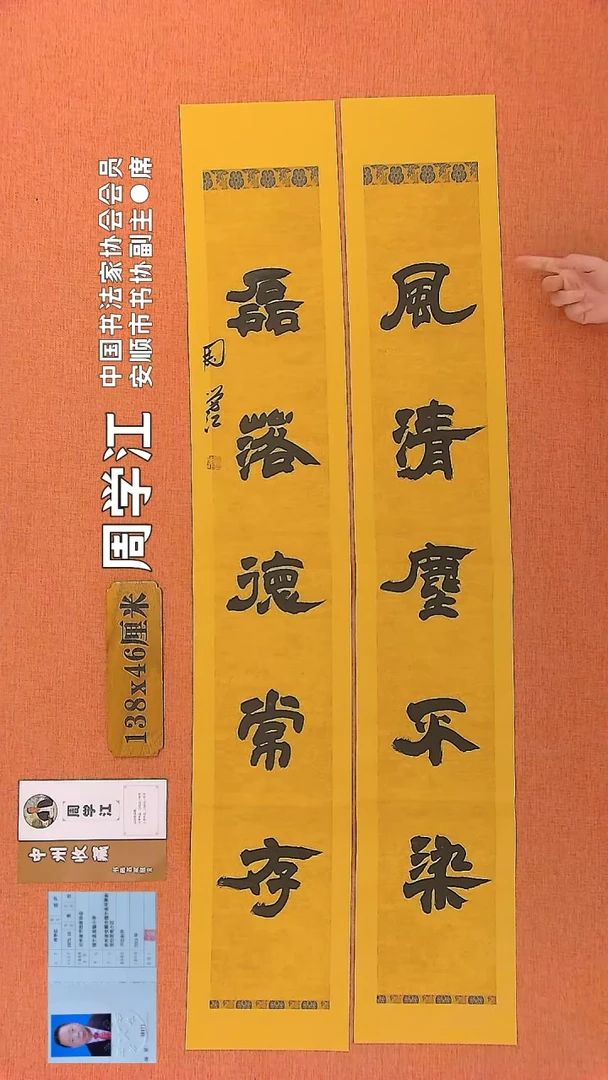 風清塵不染
磊落德常存
周学江
中国书法家协会会员
安顺市书协副主●席
周学江
138x46厘米
周学江
中州收藏